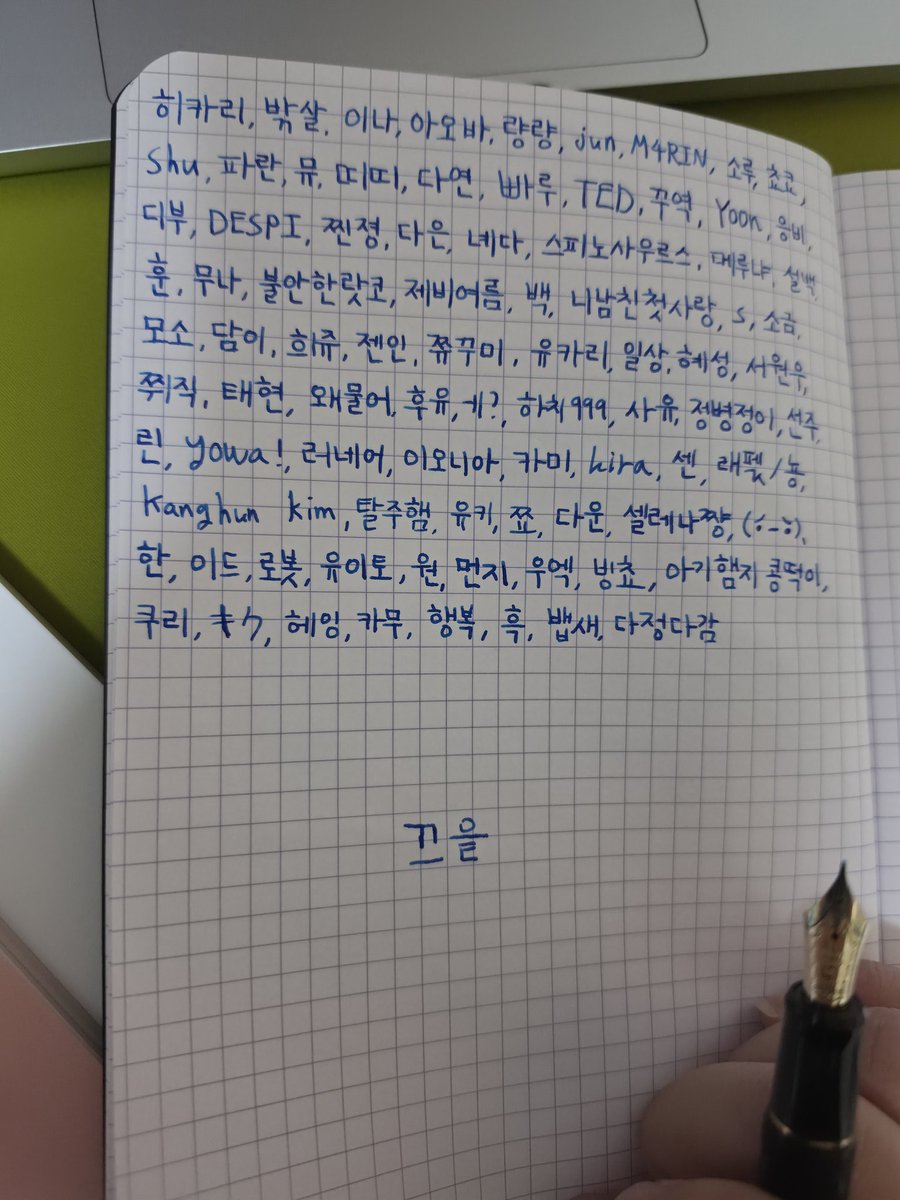 히카리, 밖살, 이나, 아오바, 량량, jun, M4RIN, 소루, 쵸쿄,
Shu, 파란, 뮤, 띠띠, 다연, 빠루, TED, 꾸역, Yoon, 응비,
디부, DESPI, 찐정, 다은, 네다, 스피노사우르스, 메루냐, 설백,
훈, 무나, 불안한랏코, 제비여름, 백, 니남친첫사랑, s, 소금,
모소, 담이, 희쥬, 젠인, 쮸꾸미, 유카리, 일상, 혜성, 서원우,
찌직, 태현, 왜물어, 후유, 게?, 하치999, 사유, 정병정이, 선주,
린, yowa!, 러네어, 이오니아, 카미, kira, 센, 래펠/뇽,
Kanghun kim, 탈주햄, 유키, 쬬, 다운, 셀레나쨩,
한, 이드, 로봇, 유이토, 원, 먼지, 우엑, 빙쵸, 아기햄지콩떡이,
쿠리, キク, 헤잉, 카무, 행복, 흑, 뱁새, 다정다감
끄읕